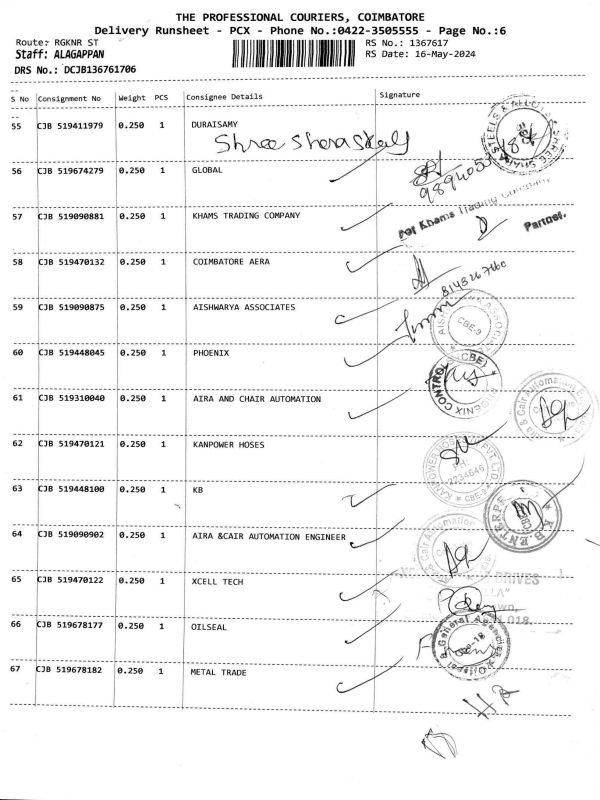 THE PROFESSIONAL COURIERS, COIMBATORE
Delivery Runsheet - PCX - Phone No.:0422-3505555 - Page No.:6
Route: RGKNR ST RS No.: 1367617
Staff: ALAGAPPAN RS Date: 16-May-2024
DRS No.: DCJB136761706
S No Consignment No Weight PCS Consignee Details Signature
55 CJB 519411979 0.250 1 DURAISAMY
56 CJB 519674279 0.250 1 GLOBAL
57 CJB 519090881 0.250 1 KHAMS TRADING COMPANY
For Khams Trading Company
Partner.
58 CJB 519470132 0.250 1 COIMBATORE AERA
59 CJB 519090875 0.250 1 AISHWARYA ASSOCIATES
CBE-9
60 CJB 519448045 0.250 1 PHOENIX
PHOENIX CONTROLS (CBE)
61 CJB 519310040 0.250 1 AIRA AND CHAIR AUTOMATION
62 CJB 519470121 0.250 1 KANPOWER HOSES
KANPOWER HOSES PVT. LTD. CBE-9
PH: 2234646
63 CJB 519448100 0.250 1 KB
64 CJB 519090902 0.250 1 AIRA &CAIR AUTOMATION ENGINEER
65 CJB 519470122 0.250 1 XCELL TECH
DRIVES
66 CJB 519678177 0.250 1 OILSEAL
67 CJB 519678182 0.250 1 METAL TRADE